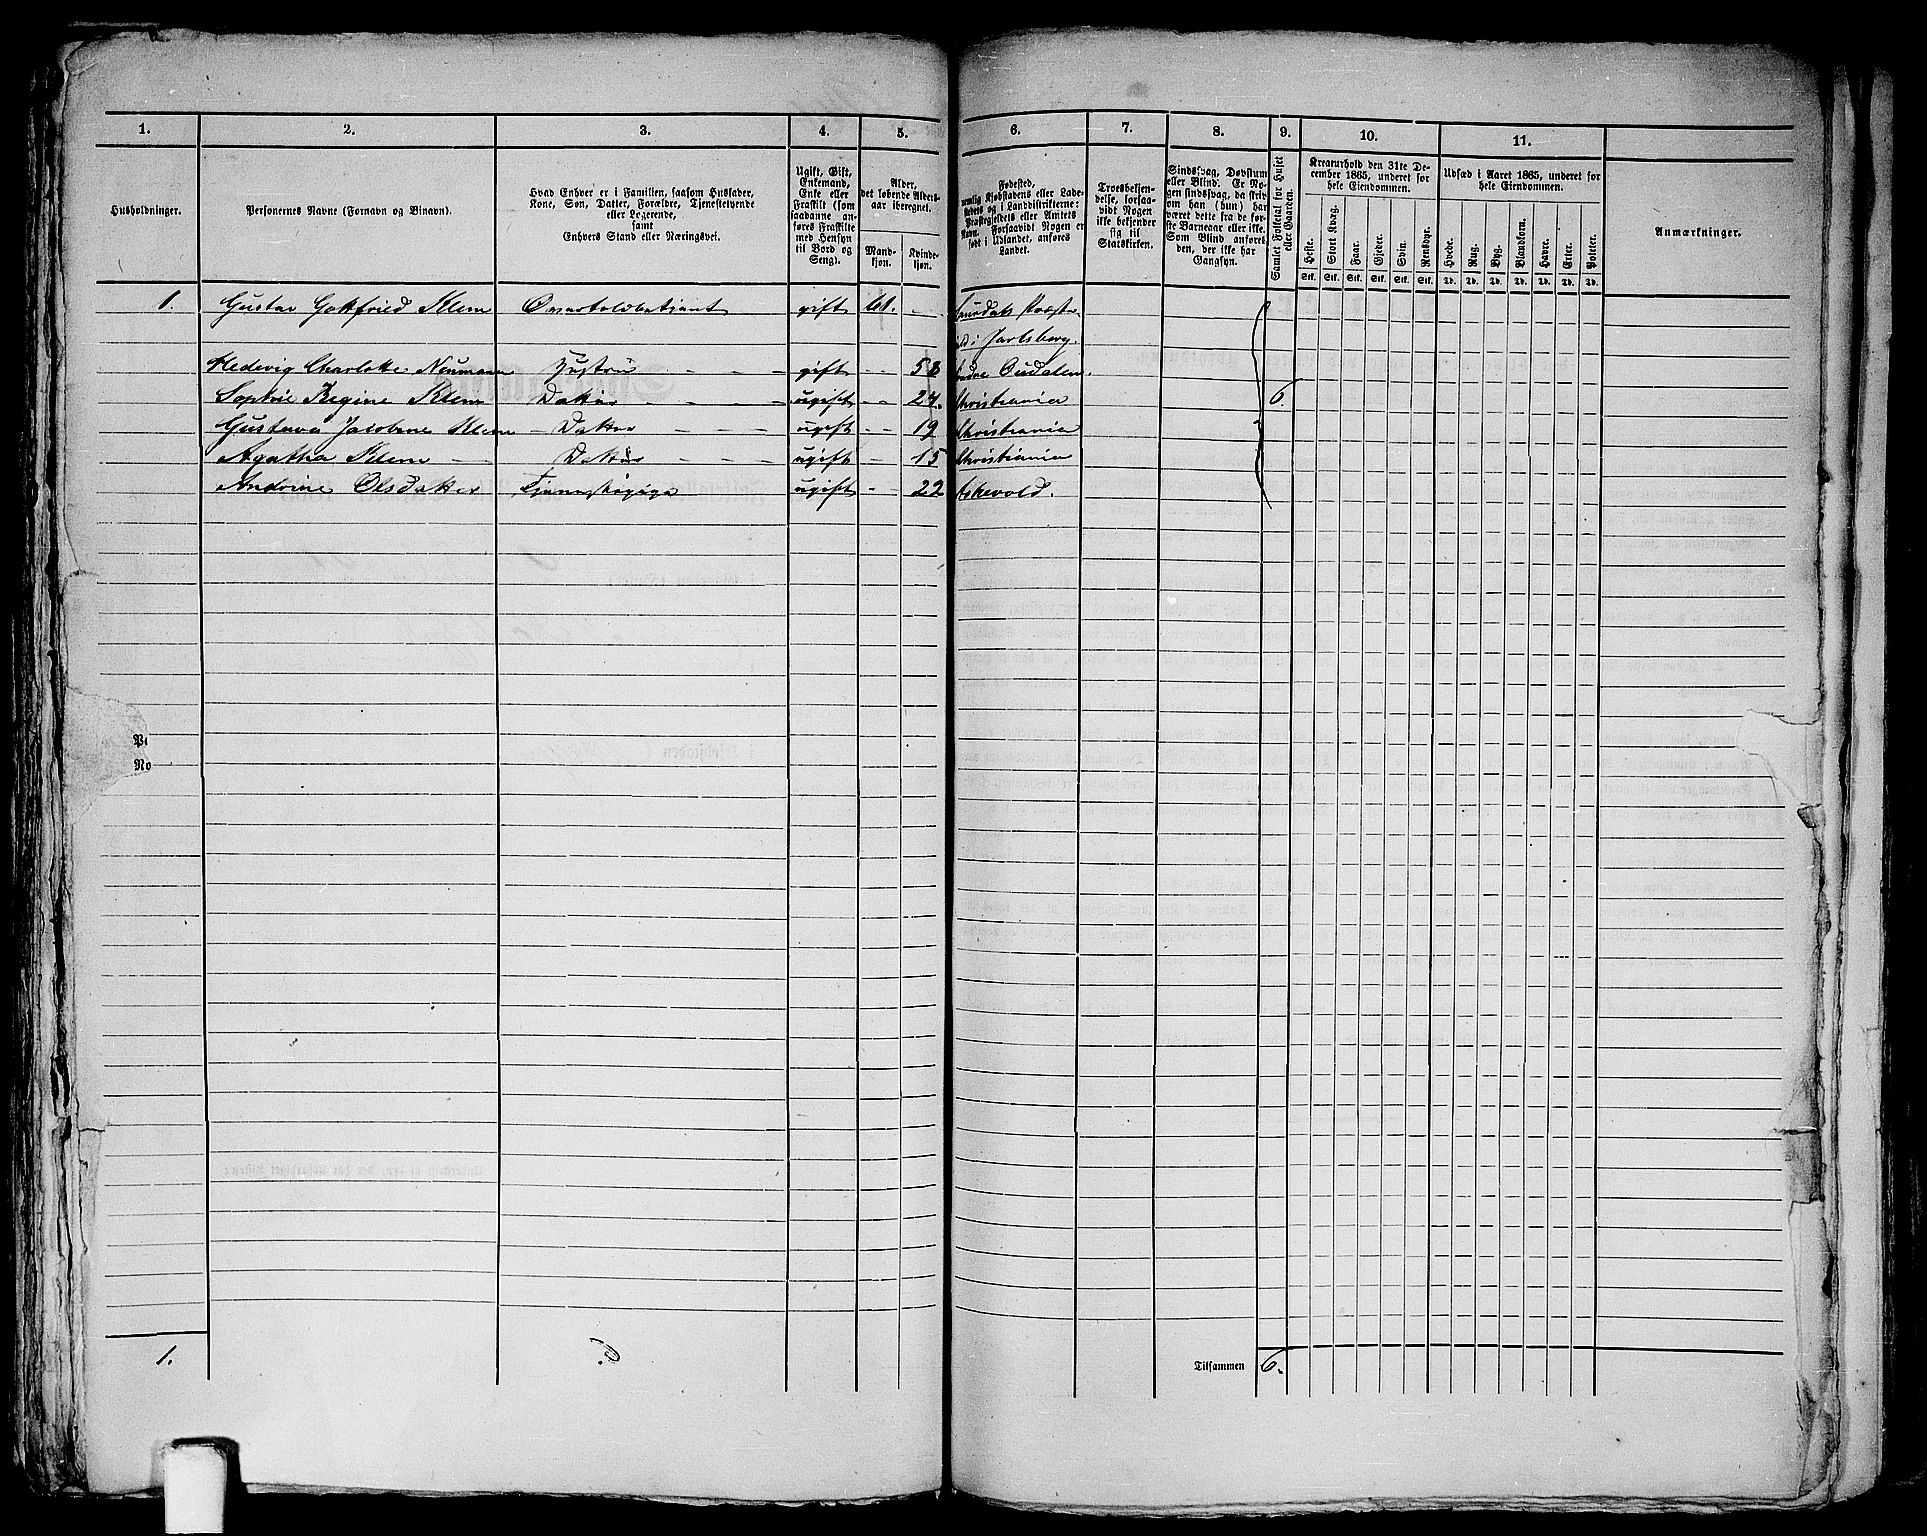 1. 2. 3. 4. 5. 6. 7. 8. 9. 10. 11.
Husholdninger.
Personernes Navne (Fornavn og Binavn).
Hvad Enhver er i Familien, saasom Husfader,
Kone, Søn, Datter, Forældre, Tjenestetyende
eller Logerende,
samt
Enhvers Stand eller Næringsvei.
Ugift, Gift,
Enkemand,
Enke eller
Fraskilt (som
saadanne an-
føres Fraskilte
med Hensyn
til Bord og
Seng).
Alder,
det løbende Alders-
aar iberegnet.
Mand-
kjøn.
Kvinde-
kjøn.
Fødested,
nemlig Kjøbstadens eller Lade-
stedets og i Landdistrikterne:
Præstegjeldets eller Amtets
Navn. Forsaavidt Nogen er
født i Udlandet, anføres
Landet.
Troesbekjen-
delse, forsaa-
vidt Nogen
ikke bekjender
sig til
Statskirken.
Sindssvag, Døvstum
eller Blind. Er No-
gen sindssvag, da skriv
om han (hun) har
været dette fra de før-
ste Barneaar eller ikke.
Som Blind anføres
den, der ikke har
Gangsyn.
Samlet Folketal for Huset
eller Gaarden.
Kreaturhold den 31te De-
cember 1865, underet for
hele Eiendommen.
Heste. Stort Kvæg. Faar. Gjeder. Svin. Rensdyr.
Stk. Stk. Stk. Stk. Stk. Stk.
Udsæd i Aaret 1865, underet for
hele Eiendommen.
Hvede. Rug. Byg. Blandkorn. Havre. Erter. Poteter.
Td. Td. Td. Td. Td. Td. Td.
Anmærkninger.
1. Gustav Gottfried Klem Overtoldbetjent gift 61. Laurdals Præste-
gjeld i Jarlsberg.
Hedevig Charlotte Neumann Hustru gift 58 Andre Oudalen.
Sophie Regine Klem Datter ugift 27. Christiania 6.
Gustava Jacobine Klem Datter ugift 19 Christiania
Agatha Klem Datter ugift 15 Christiania
Andrine Olsdatter Tjenestepige ugift 22 Askevold.
No
1. 6. Tilsammen 6.